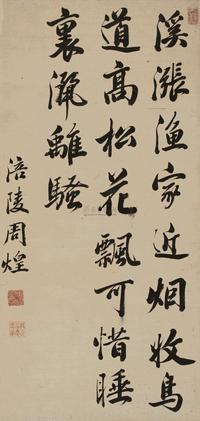 溪漲渔家近烟收鳥
道高松花飄可惜睡
裏灑離騷
涪陵周煌